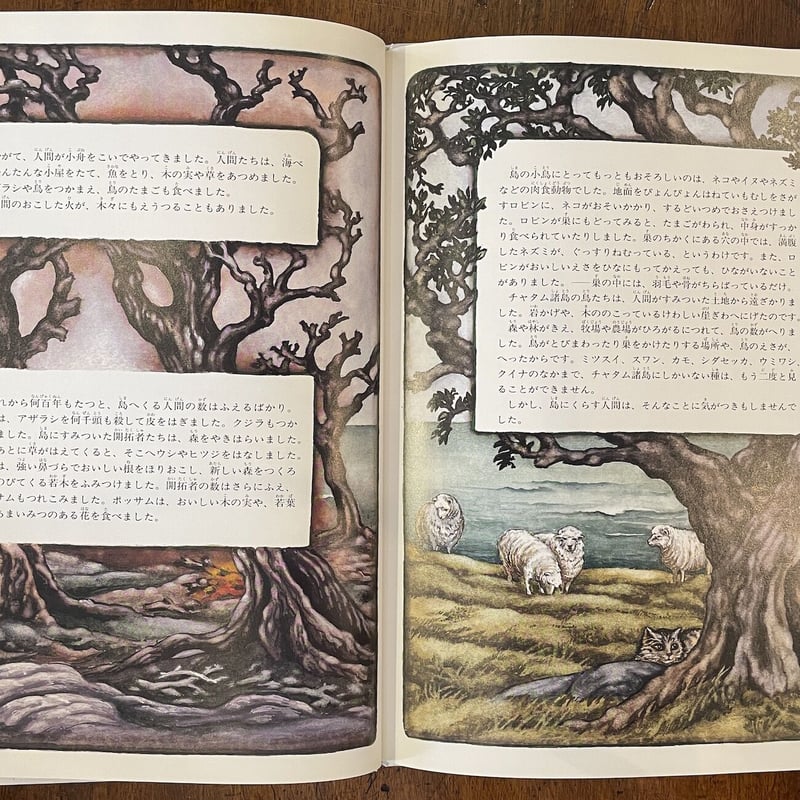 がて、人間が小舟をこいでやってきました。人間たちは、海べ
んたんな小屋をたて、魚をとり、木の実や草をあつめました。
ラシや鳥をつかまえ、鳥のたまごも食べました。
間のおこした火が、木々にもえうつることもありました。
れから何百年もたつと、島へくる人間の数はふえるばかり。
は、アザラシを何千頭も殺して皮をはぎました。クジラもつか
ました。島にすみついた開拓者たちは、森をやきはらいました。
あとに草がはえてくると、そこへウシやヒツジをはなしました。
は、強い鼻づらでおいしい根をほりおこし、新しい森をつくろ
のびてくる若木をふみつけました。開拓者の数はさらにふえ、
サムもつれこみました。ポッサムは、おいしい木の実や、若葉
あまいみつのある花を食べました。
島の小鳥にとってもっともおそろしいのは、ネコやイヌやネズミ
などの肉食動物でした。地面をぴょんぴょんはねていもむしをさが
すロビンに、ネコがおそいかかり、するどいつめでおさえつけまし
た。ロビンが巣にもどってみると、たまごがわられ、中身がすっか
り食べられていたりしました。巣のちかくにある穴の中では、満腹
したネズミが、ぐっすりねむっている、というわけです。また、ロ
ビンがおいしいえさをひなにもってかえっても、ひながいないこと
がありました。——巣の中には、羽毛や骨がちらばっているだけ。
チャタム諸島の鳥たちは、人間がすみついた土地から遠ざかりま
した。岩かげや、木ののこっているけわしい崖ぎわへにげたのです。
森や林がきえ、牧場や農場がひろがるにつれて、鳥の数がへりま
した。鳥がとびまわったり巣をかけたりする場所や、鳥のえさが、
へったからです。ミツスイ、スワン、カモ、シダセッカ、ウミワシ、
クイナのなかまで、チャタム諸島にしかいない種は、もう二度と見
ることができません。
しかし、島にくらす人間は、そんなことに気がつきもしませんで
した。